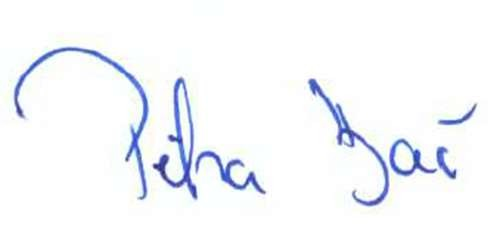 Petra Bač